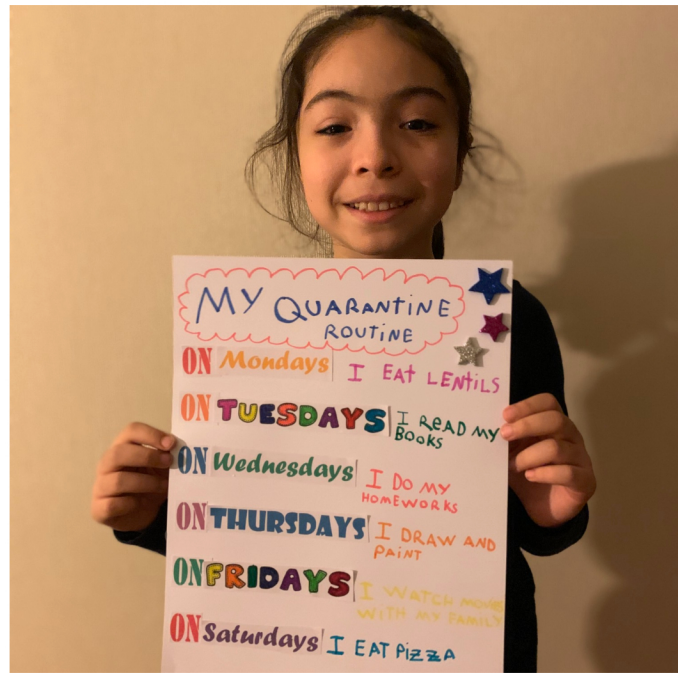 MY QUARANTINE
ROUTINE
ON Mondays I EAT LENTILS
ON TUESDAYS I READ MY
BOOKS
ON Wednesdays I DO MY
HOMEWORKS
ON THURSDAYS I DRAW AND
PAINT
ON FRIDAYS I WATCH MOVIES
WITH MY FAMILY
ON Saturdays I EAT PIZZA